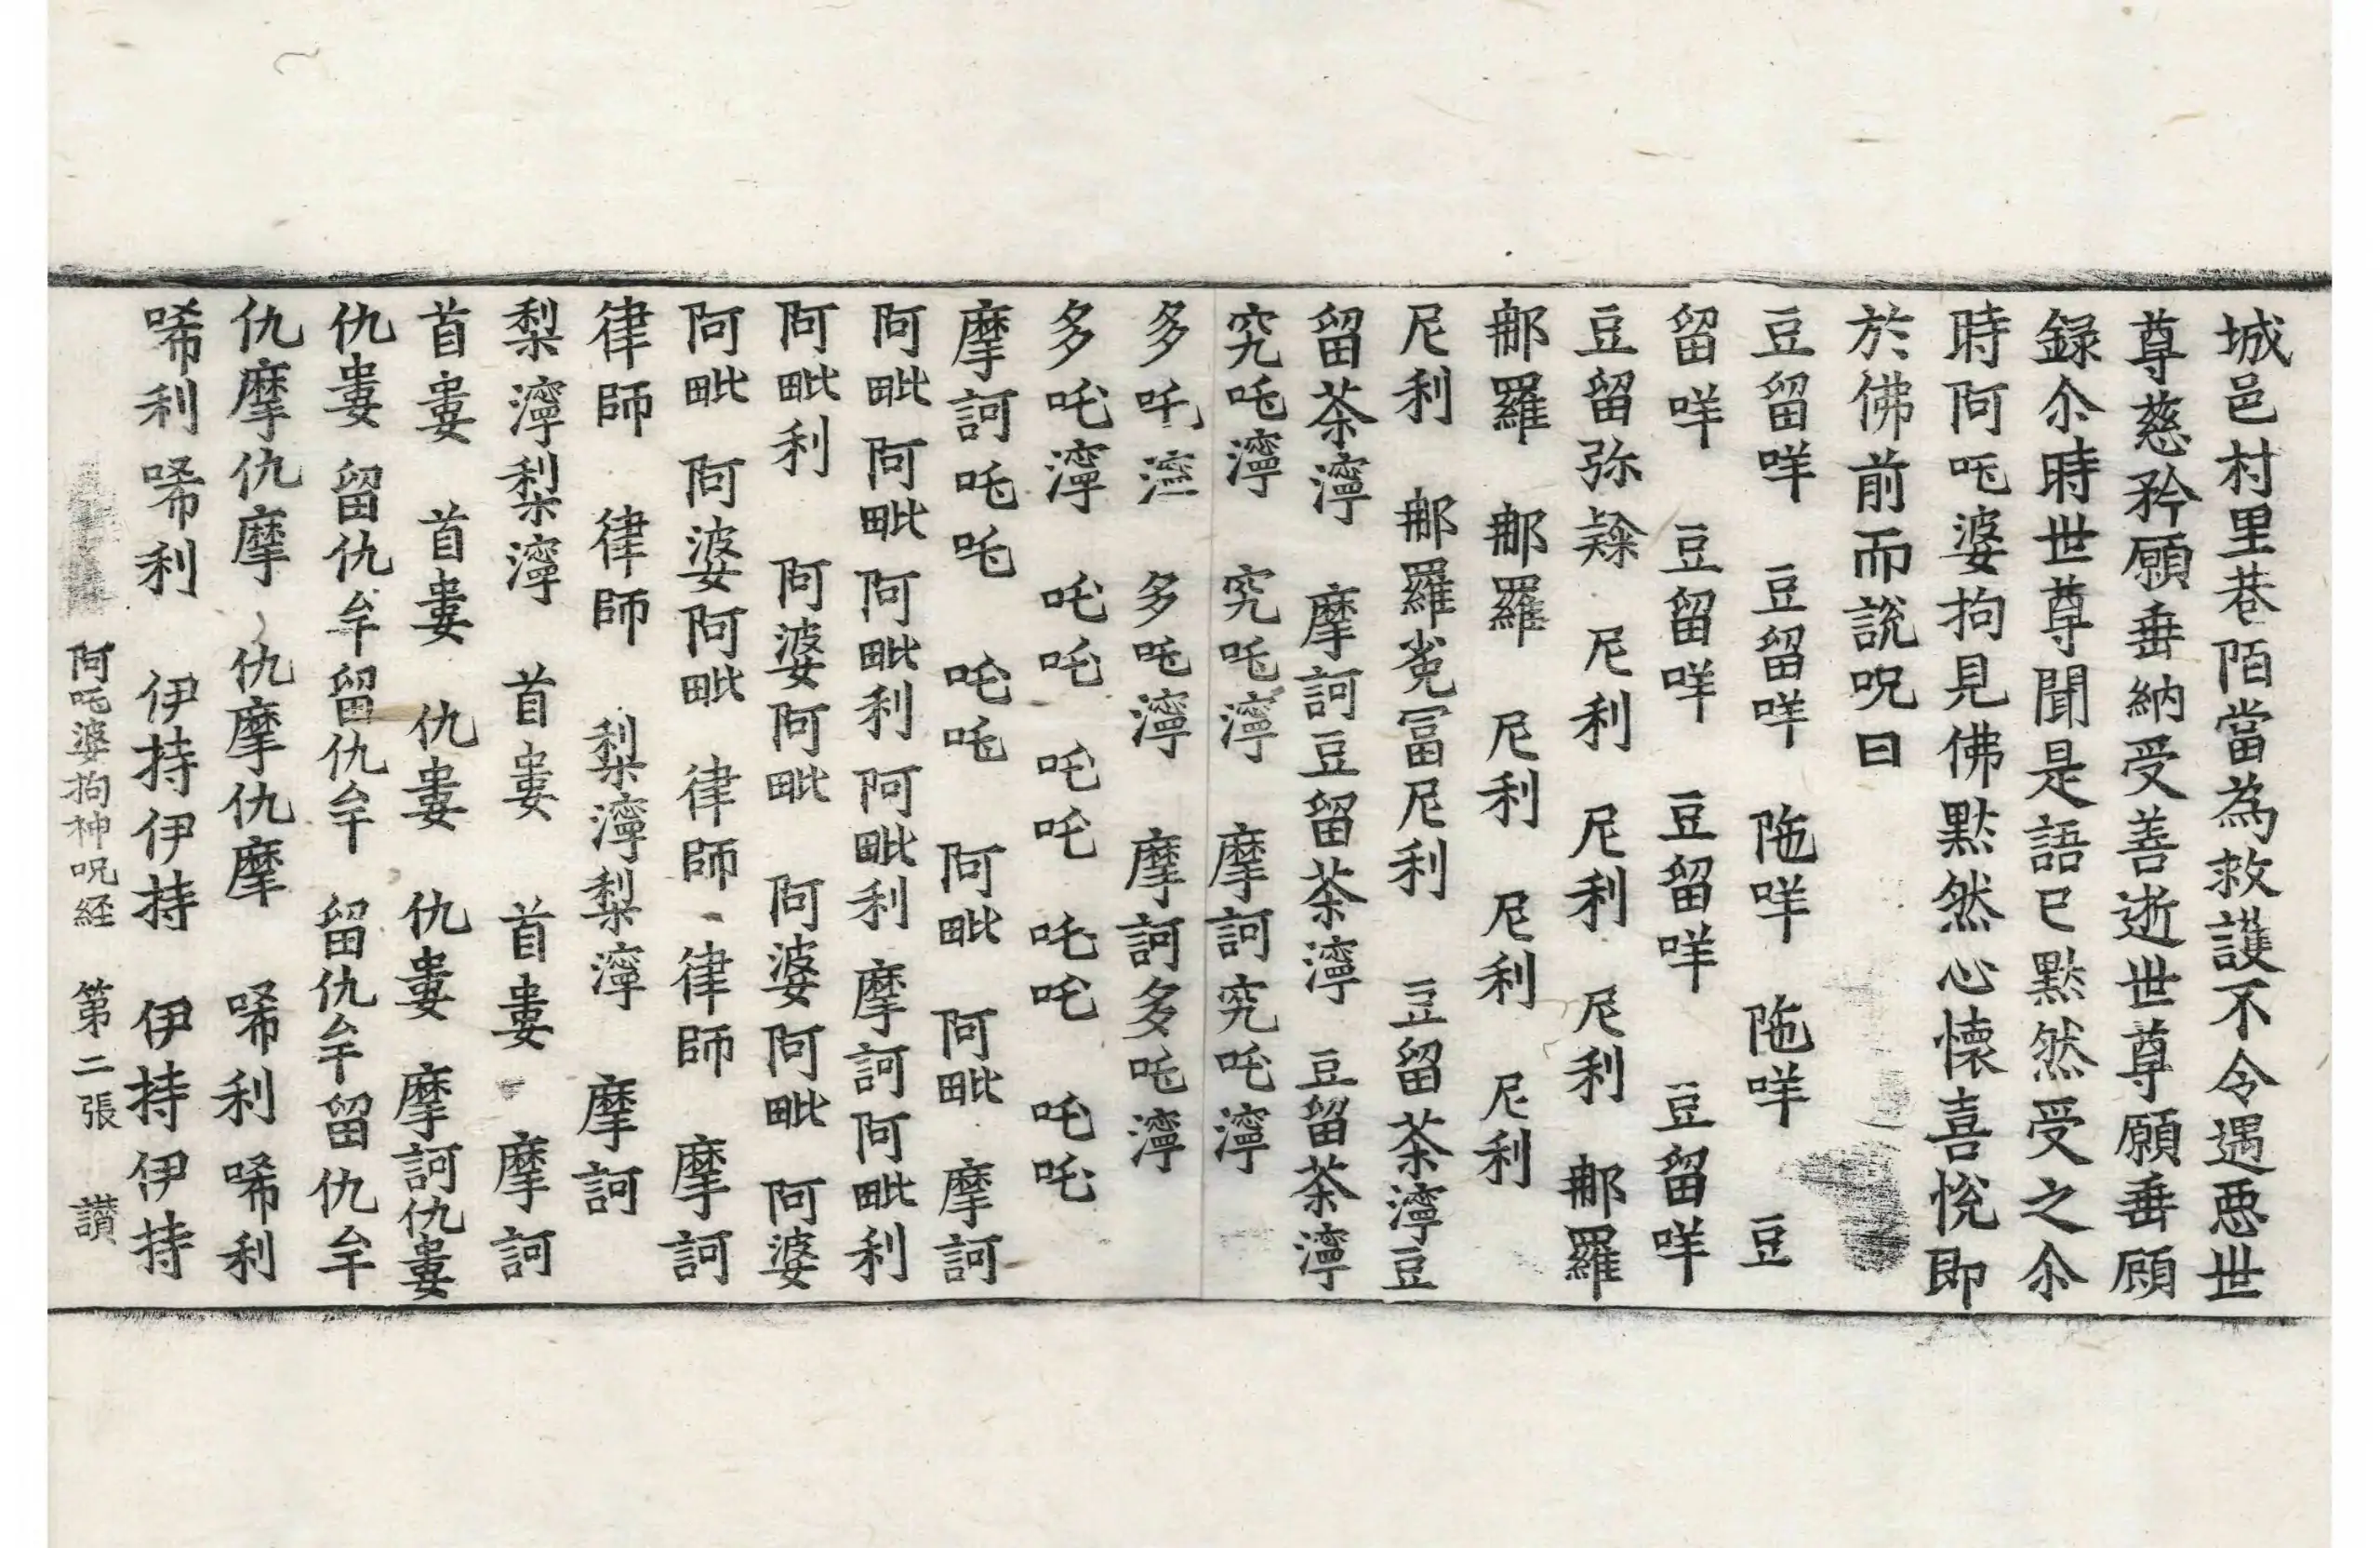 城邑村里巷陌當為救護不令遇惡世
尊慈矜願垂納受善逝世尊願垂顧
録尒時世尊聞是語已黙然受之尒
時阿吒婆拘見佛黙然心懷喜悅即
於佛前而說呪曰
豆留咩　豆留咩　陁咩　陁咩　豆
留咩　豆留咩　豆留咩　豆留咩
豆留弥　尼利　尼利　尼利　郍羅
郍羅　郍羅　尼利　尼利　尼利
尼利　郍羅　冨尼利　豆留荼濘豆
留荼濘　摩訶豆留荼濘　豆留荼濘
究吒濘　究吒濘　摩訶究吒濘
多吒濘　多吒濘　摩訶多吒濘
多吒濘　吒吒　吒吒　吒吒　吒吒
摩訶吒吒　吒吒　阿毗　阿毗　摩訶
阿毗阿毗　阿毗利阿毗利　摩訶阿毗利
阿毗利　阿婆阿毗　阿婆阿毗　阿婆
阿毗　阿婆阿毗　律師　律師　摩訶
律師　律師　梨濘梨濘　摩訶
梨濘梨濘　首婁　首婁　摩訶
首婁　首婁　仇婁　仇婁　摩訶仇婁
仇婁　留仇牟留仇牟　留仇牟留仇牟
仇摩仇摩　仇摩仇摩　唏利唏利
唏利唏利　伊持伊持　伊持伊持
阿吒婆拘神呪経　第二張　讃